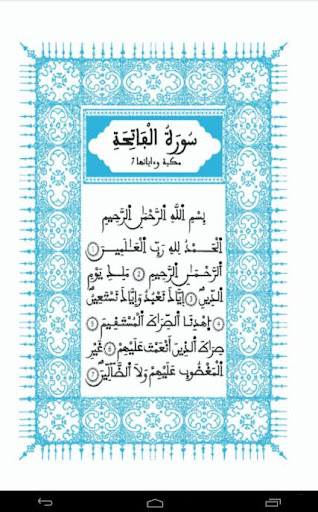 سُورَةُ الْفَاتِحَةِ
مكية وءاياتها 7
بِسْمِ اِللَّهِ اِلرَّحْمَٰنِ اِلرَّحِيمِ
اِلْحَمْدُ لِلهِ رَبِّ اِلْعَٰلَمِينَ ١
اَلرَّحْمَٰنِ اِلرَّحِيمِ ٢ مَلِكِ يَوْمِ
اِلدِّينِ ٣ إِيَّاكَ نَعْبُدُ وَإِيَّاكَ نَسْتَعِينُ
٤ اِهْدِنَا اَلصِّرَٰطَ اَلْمُسْتَقِيمَ ٥
صِرَٰطَ اَلذِينَ أَنْعَمْتَ عَلَيْهِمْ ٦ غَيْرِ
اِلْمَغْضُوبِ عَلَيْهِمْ وَلَا اَلضَّآلِّينَ ٧